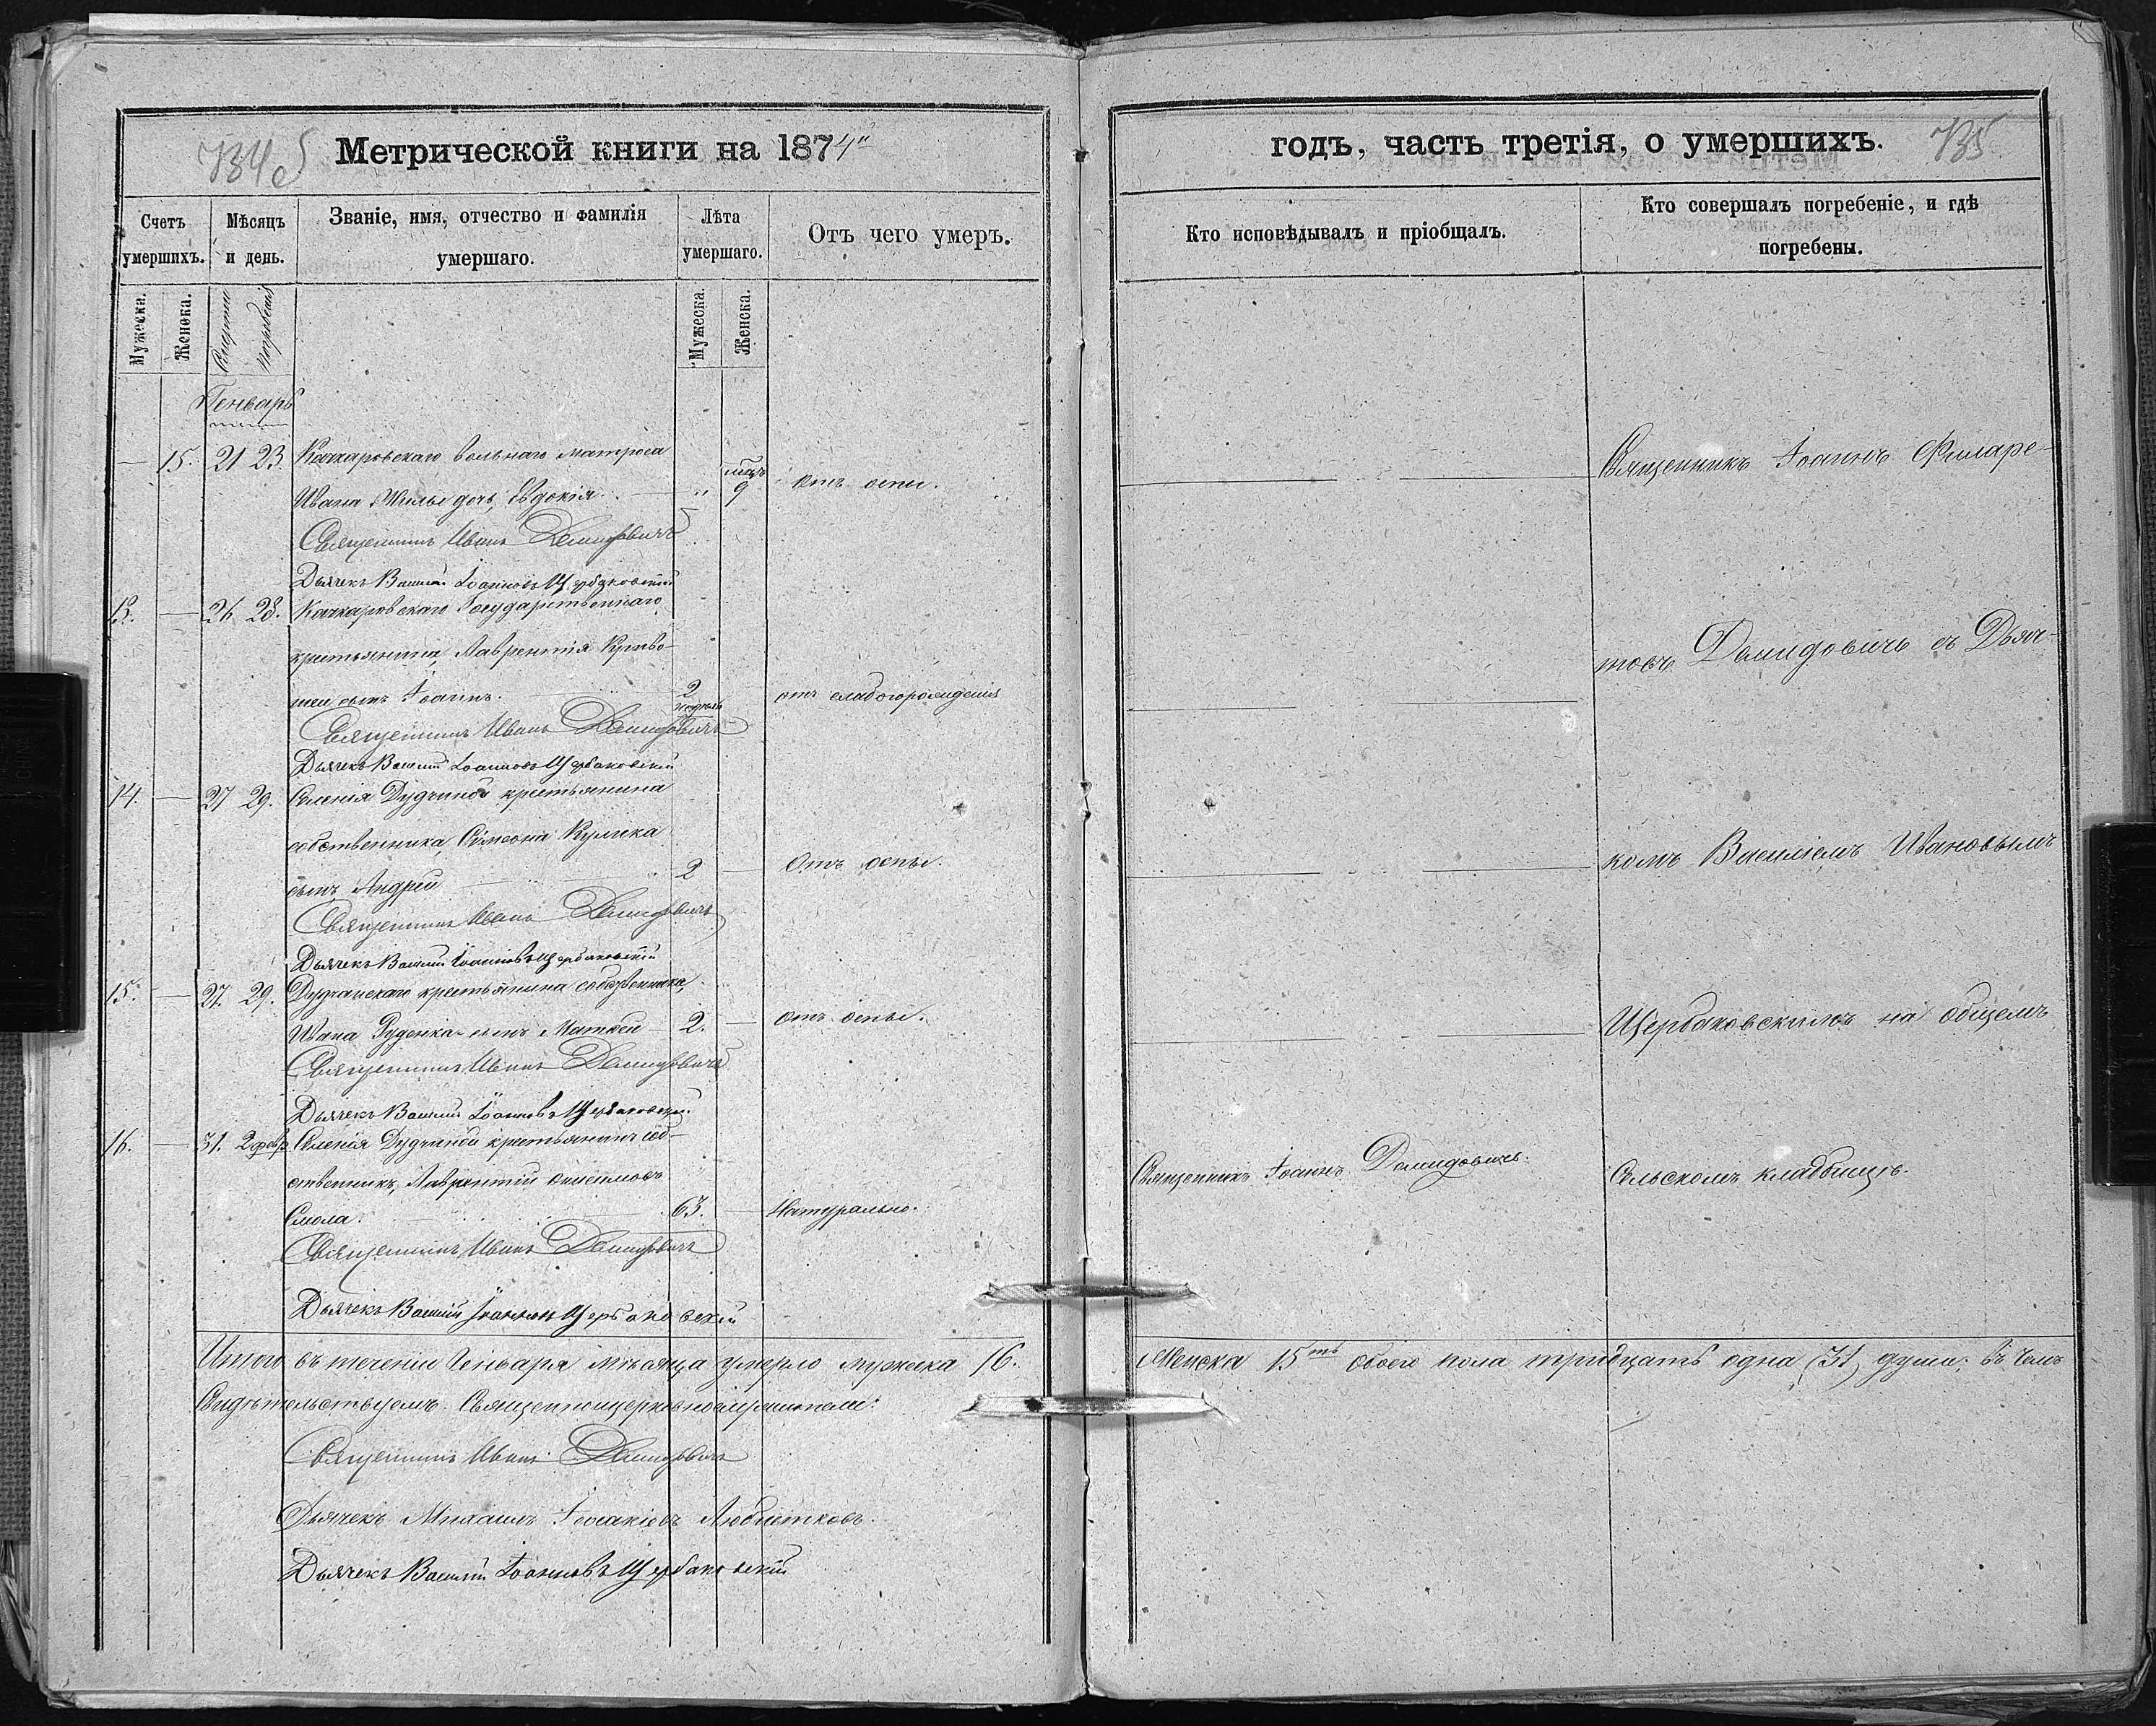 734 об
Метрической книги на 1874й
Счетъ умершихъ.
Мѣсяцъ и день.
Званіе, имя, отчество и фамилія умершаго.
Лѣта умершаго.
Отъ чего умеръ.
Мужеска.
Женска.
Смерти
погребенія
Мужеска.
Женска.
Генварь
— 15. 21 23. Качкаровскаго вольнаго матроса
Ивана дочь, Евдокія. — " мѣц. 9 отъ оспы.
Священникъ Иванъ Демидовичъ
Дьячекъ Василій Іоанновъ Щербаковскій
13. — 26 28. Качкаровскаго Государственнаго
крестьянина, Лаврентія
сынъ Іоаннъ. 2 недѣль отъ слабогорожденія
Священникъ Иванъ Демидовичъ
Дьячекъ Василій Іоанновъ Щербаковскій
14. — 27 29. Селенія Дудчиной крестьянина
собственника, Сѵмеона Кулика
сынъ Андрей 2 — Отъ оспы.
Священникъ Иванъ Демидовичъ
Дьячекъ Василій Іоанновъ Щербаковскій
15. — 27. 29. Дудчанскаго крестьянина собственника,
Ивана Руденка сынъ Матѳей 2. — отъ оспы.
Священникъ Иванъ Демидовичъ
Дьячекъ Василій Іоанновъ Щербаковскій
16. — 31. 2 февр. Селенія Дудчиной крестьянинъ соб-
ственникъ, Лаврентій Онисимовъ
Смола. 63. — Натурально.
Священникъ Иванъ Демидовичъ
Дьячекъ Василій Іоанновъ Щербаковскій
Итого въ теченіи Генваря мѣсяца умерло мужеска 16.
Свидѣтельствуемъ Священноцерковнослужители:
Священникъ Иванъ Демидовичъ
Дьячекъ Михаилъ
Дьячекъ Василій Іоанновъ Щербаковскій
годъ, часть третія, о умершихъ.
735
Кто исповѣдывалъ и пріобщалъ.
Кто совершалъ погребеніе, и гдѣ погребены.
Священникъ Іоаннъ Филаре-
товъ Демидовичъ съ Дьяч-
комъ Василіемъ Ивановымъ
Щербаковскимъ на общемъ
Священникъ Іоаннъ Демидовичъ.
Сельскомъ кладбищѣ.
Женска 15ть обоего пола тридцать одна (31) душа; въ чемъ